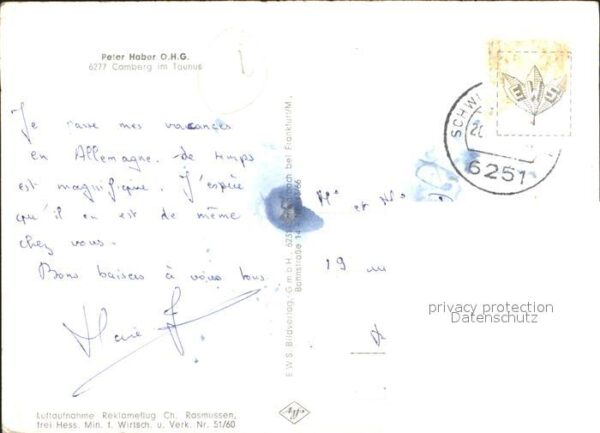 Peter Haber O.H.G.
6277 Camberg im Taunus
Je passe mes vacances
en Allemagne. Le temps
est magnifique. J'espère
qu'il en est de même
chez vous.
Bons baisers à vous tous
Marie
Luftaufnahme Reklameflug Ch. Rasmussen,
frei Hess. Min. f. Wirtsch. u. Verk. Nr. 51/60
E.W.S. Bildverlag, G.m.b.H., bach bei Frankfurt/M.,
Bannstraße
et
19
SCHWI
6251
privacy protection
Datenschutz